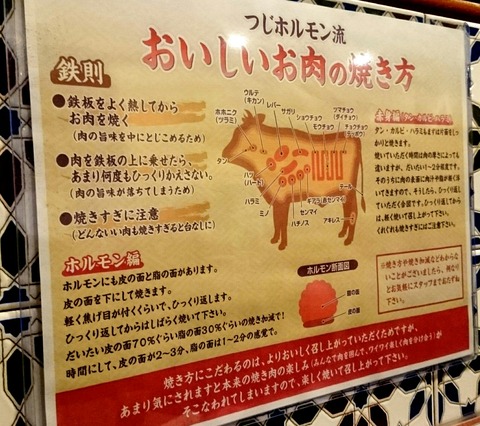 つじホルモン流
おいしいお肉の焼き方
鉄則
●鉄板をよく熱してから
お肉を焼く
(肉の旨味を中にとじこめるため)
●肉を鉄板の上に乗せたら、
あまり何度もひっくりかえさない。
(肉の旨味が落ちてしまうため)
●焼きすぎに注意
(どんないい肉も焼きすぎると台なしに)
ホルモン編
ホルモンにも皮の面と脂の面があります。
皮の面を下にして焼きます。
軽く焦げ目が付くくらいで、ひっくり返します。
ひっくり返してからはしばらく焼いて下さい。
だいたい皮の面70%ぐらい脂の面30%ぐらいの焼き加減!
時間にして、皮の面が2〜3分、脂の面は1〜2分の感覚で。
ウルテ
(キカン)
レバー
サガリ
ショウチョウ
ツマチョウ
(ダイチョウ)
モウチョウ
チョクチョウ
(テッポウ)
ホホニク
(ツラミ)
タン
ハツ
(ハート)
ハラミ
ミノ
ハチノス
センマイ
ギアラ(赤センマイ)
アキレス
テール
ホルモン断面図
脂の面
皮の面
タン・カルビ・ハラミもまずは片面をしっ
かりと焼きます。
※焼き方や焼き加減などわからな
いことがございましたら、何なり
とお気軽にスタッフまでおたずね
下さい。
焼き方にこだわるのは、よりおいしく召し上がっていただくためですが、
あまり気にされますと本来の焼き肉の楽しみ(みんなで肉を囲んで、ワイワイ楽しく肉を分け合う)が
そこなわれてしまいますので、楽しく焼いて召し上がって下さい。